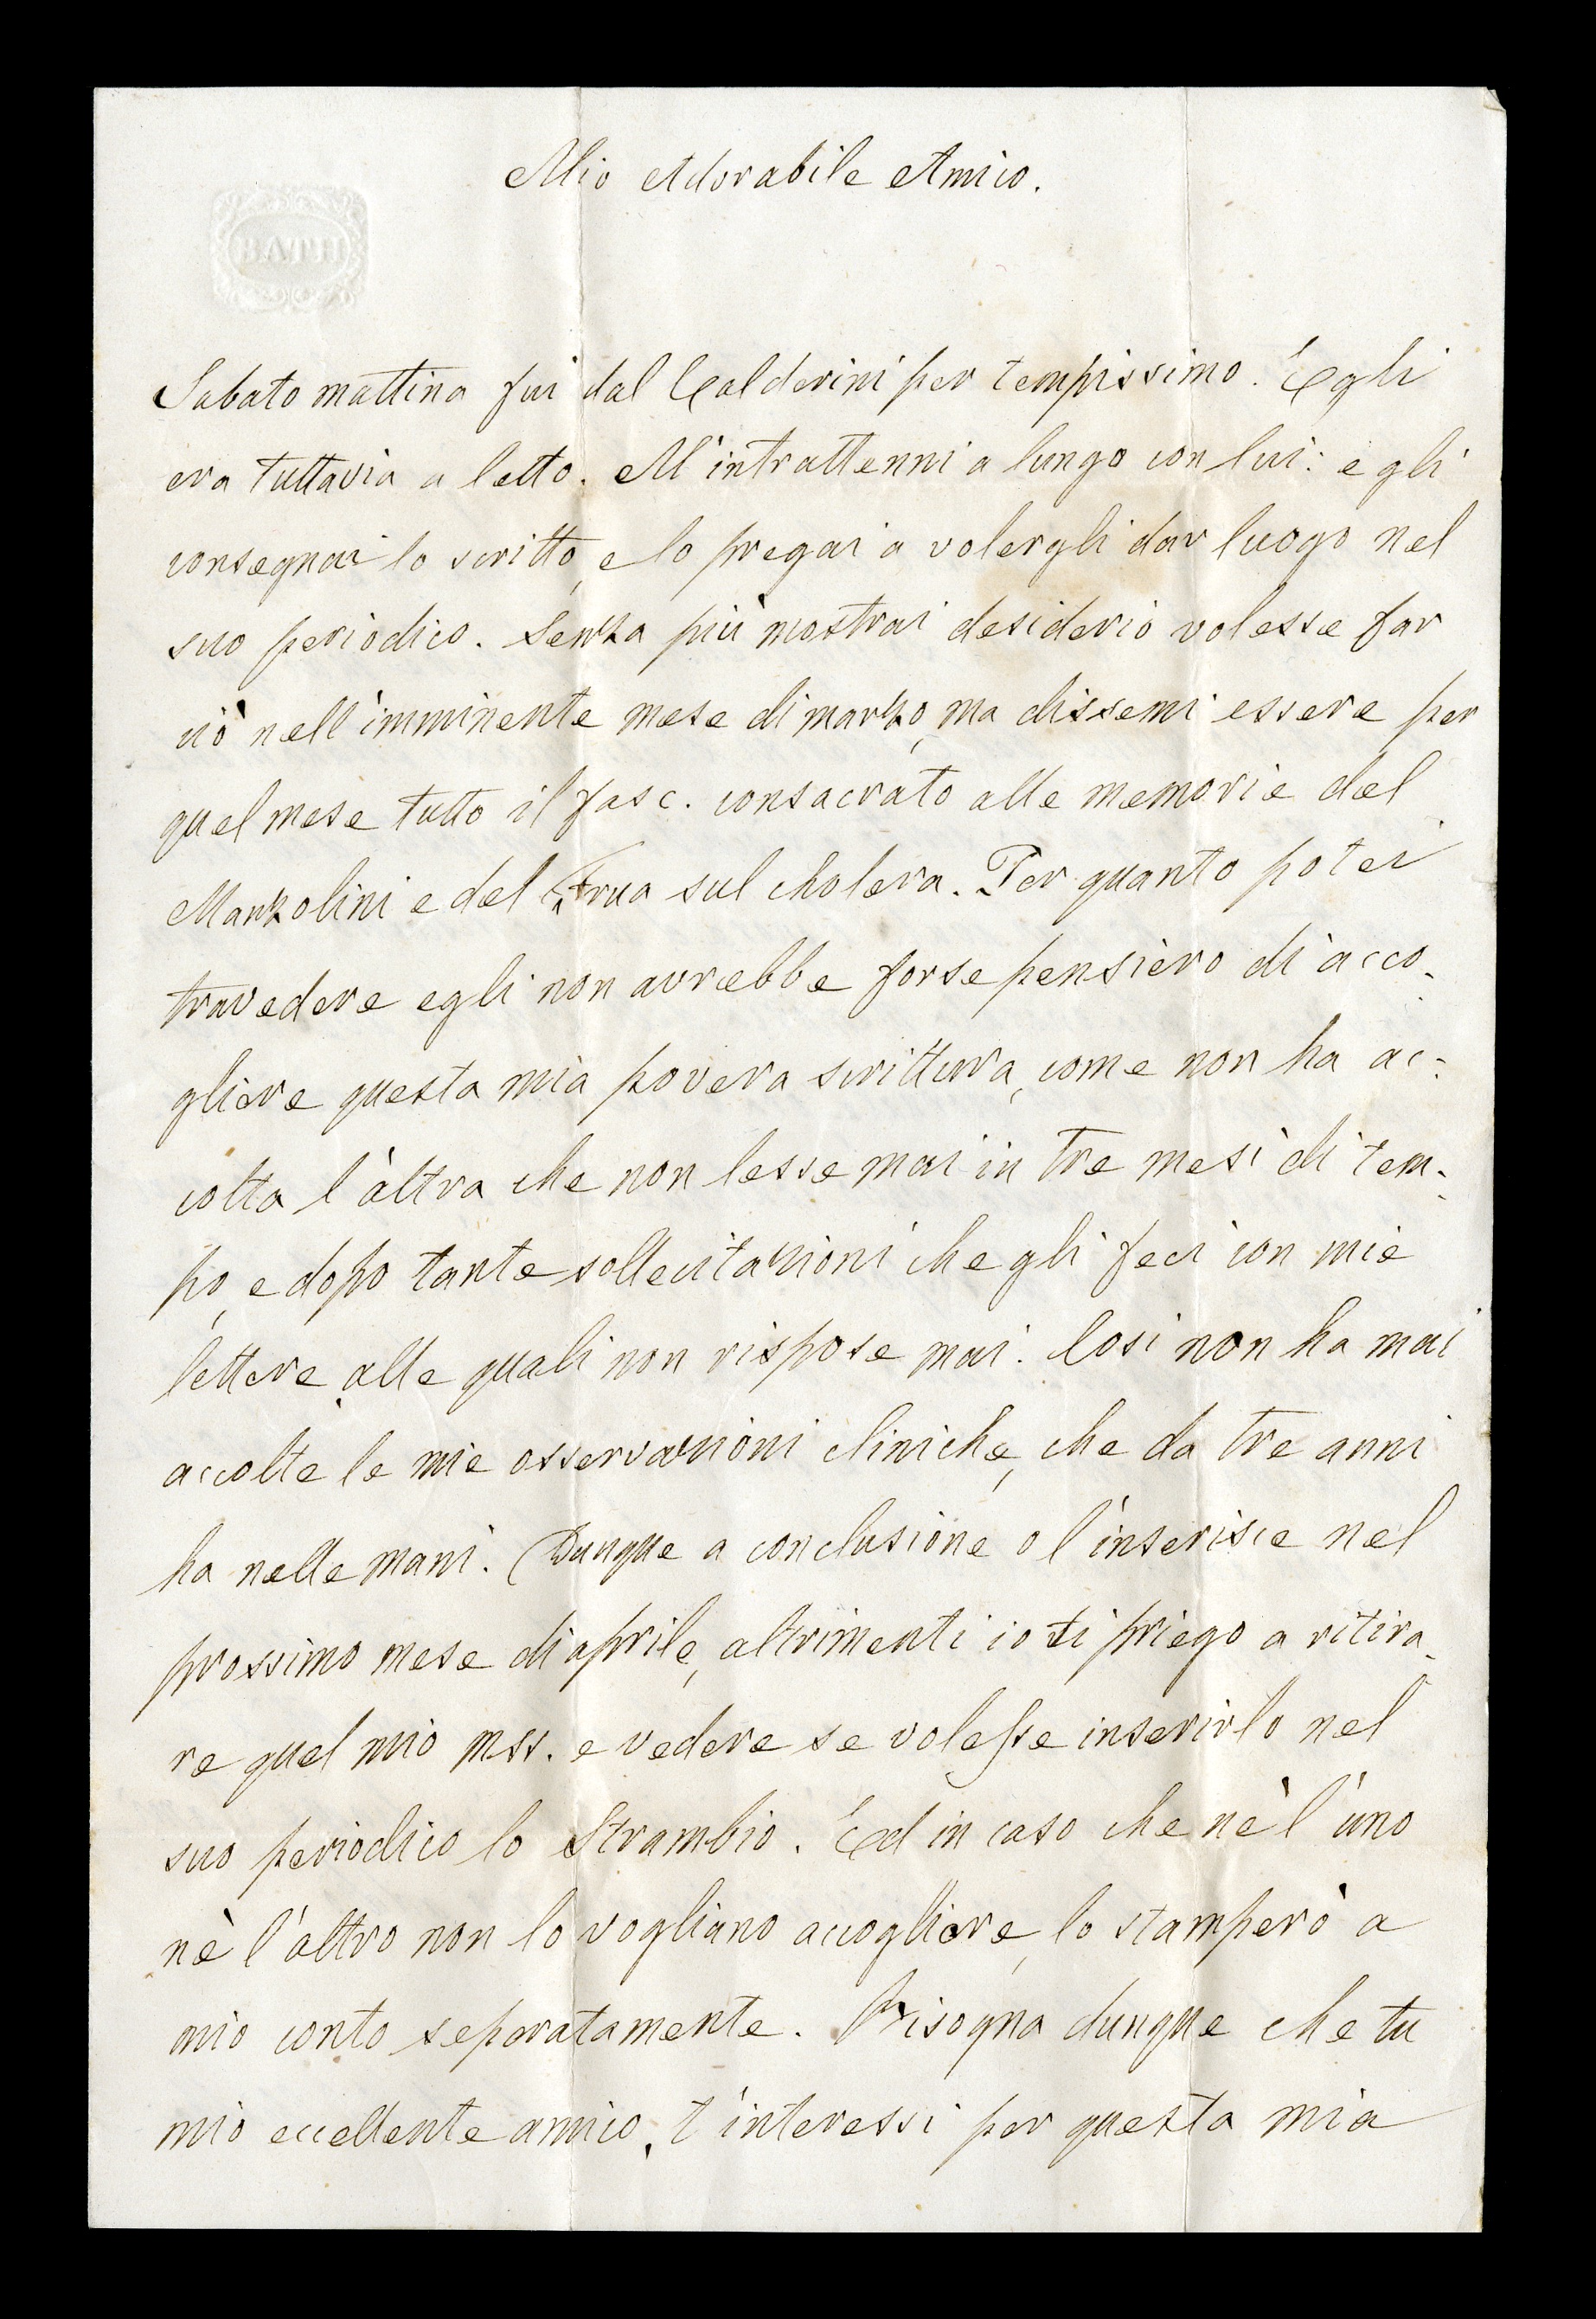 BATH
Mio Adorabile Amico.
Sabato mattina fui dal Calderini per tempissimo. Egli
era tuttavia a letto. M'intrattenni a lungo con lui: e gli
consegnai lo scritto, e lo pregai a volergli dar luogo nel
suo periodico. Senza più mostrai desiderio volesse far
ciò nell'imminente mese di marzo, ma dissemi essere per
quel mese tutto il fasc. consacrato alle memorie del
Manzolini e del Frua sul cholera. Per quanto potei
travedere egli non avrebbe forse pensiero di acco-
gliere questa mia povera scrittura, come non ha ac-
colta l'altra che non lesse mai in tre mesi di tem-
po, e dopo tante sollecitazioni che gli feci con mie
lettere, alle quali non rispose mai. Così non ha mai
accolte le mie osservazioni cliniche, che da tre anni
ha nelle mani. Dunque a conclusione o l'inserisce nel
prossimo mese di aprile, altrimenti io ti priego a ritira-
re quel mio mss. e vedere se volesse inserirlo nel
suo periodico lo Strambio. Ed in caso che nè l'uno
nè l'altro non lo vogliano accogliere, lo stamperò a
mio conto separatamente. Bisogna dunque che tu
mio eccellente amico, t'interessi per questa mia